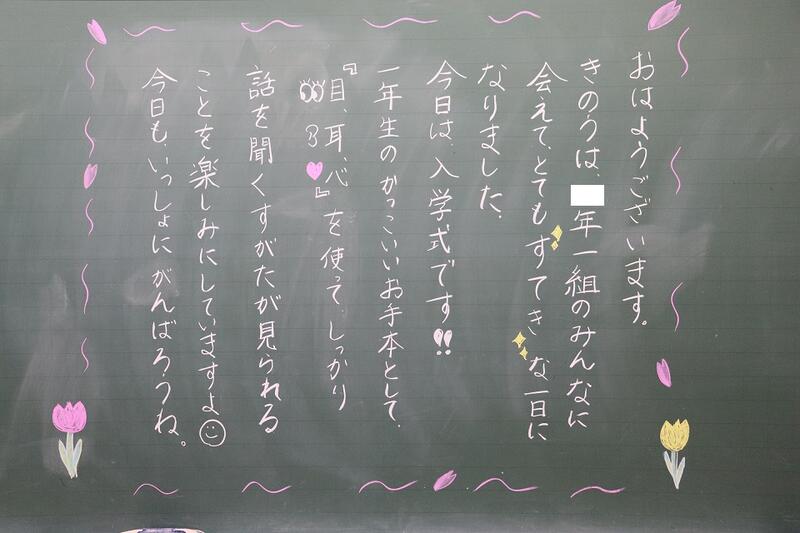 おはようございます。
きのうは、年一組のみんなに
会えて、とてもすてきな一日に
なりました。
今日は、入学式です!!
一年生のかっこいいお手本として、
『目、耳、心』を使って、しっかり
話を聞くすがたが見られる
ことを楽しみにしていますよ
今日も、いっしょにがんばろうね。